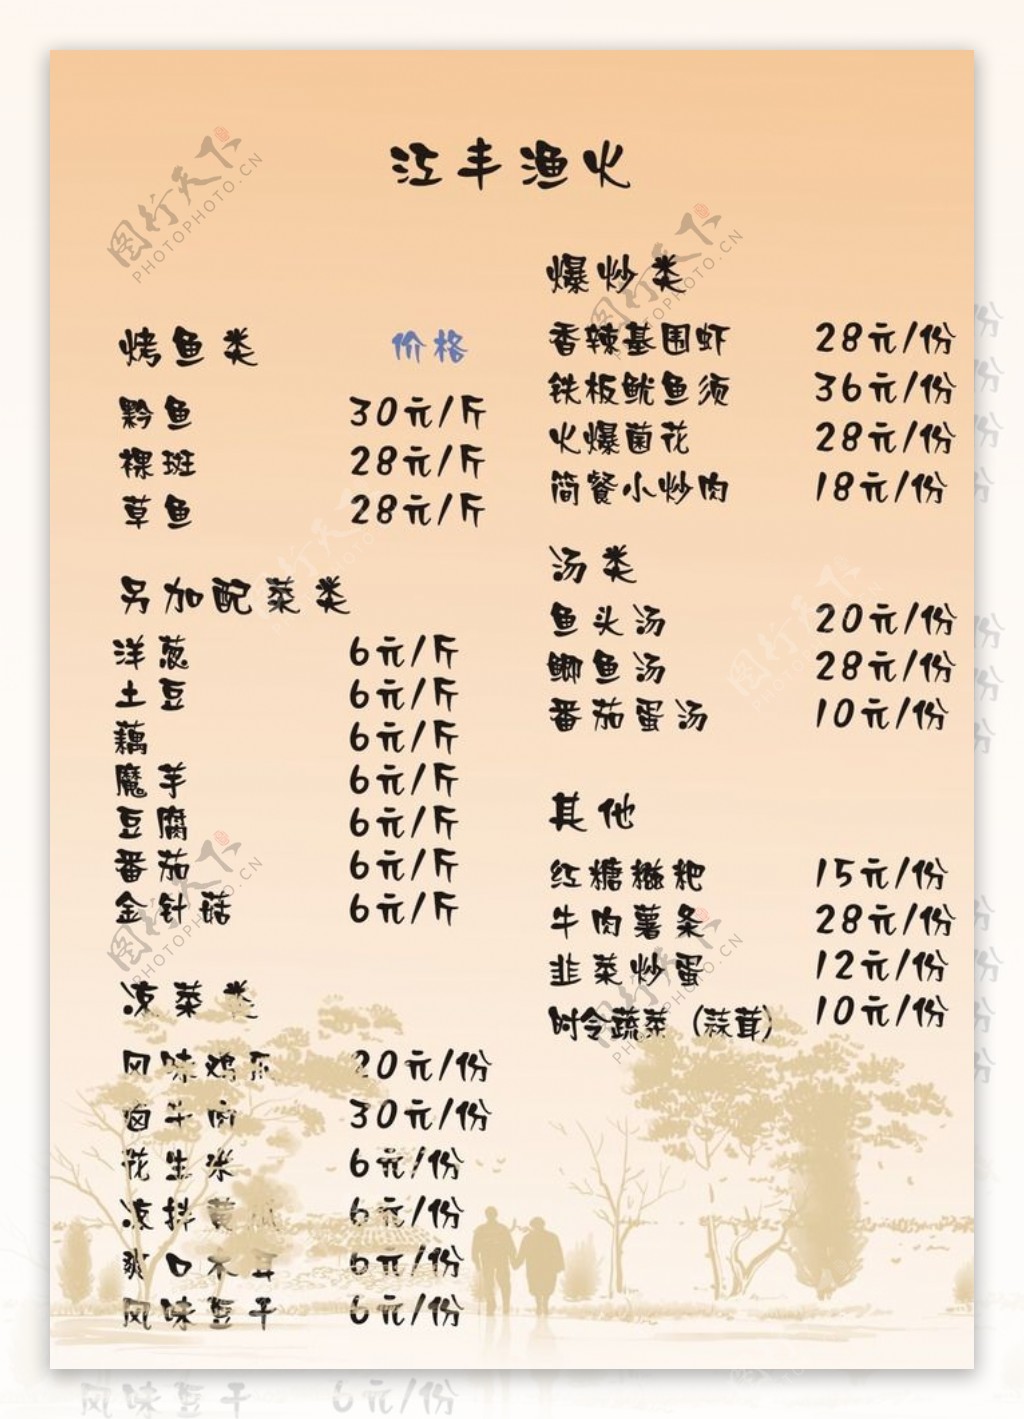 江丰渔火
烤鱼类 价格
黔鱼 30元/斤
裸斑 28元/斤
草鱼 28元/斤
另加配菜类
洋葱 6元/斤
土豆 6元/斤
藕 6元/斤
魔芋 6元/斤
豆腐 6元/斤
番茄 6元/斤
金针菇 6元/斤
凉菜类
风味鸡爪 20元/份
卤牛肉 30元/份
花生米 6元/份
凉拌黄瓜 6元/份
爽口木耳 6元/份
风味豆干 6元/份
爆炒类
香辣基围虾 28元/份
铁板鱿鱼须 36元/份
火爆菌花 28元/份
简餐小炒肉 18元/份
汤类
鱼头汤 20元/份
鲫鱼汤 28元/份
番茄蛋汤 10元/份
其他
红糖糍粑 15元/份
牛肉薯条 28元/份
韭菜炒蛋 12元/份
时令蔬菜（蒜茸） 10元/份
图行天下
PHOTOPHOTO.CN
图行天下
PHOTOPHOTO.CN
图行天下
PHOTOPHOTO.CN
图行天下
PHOTOPHOTO.CN
风味豆干 6元/份